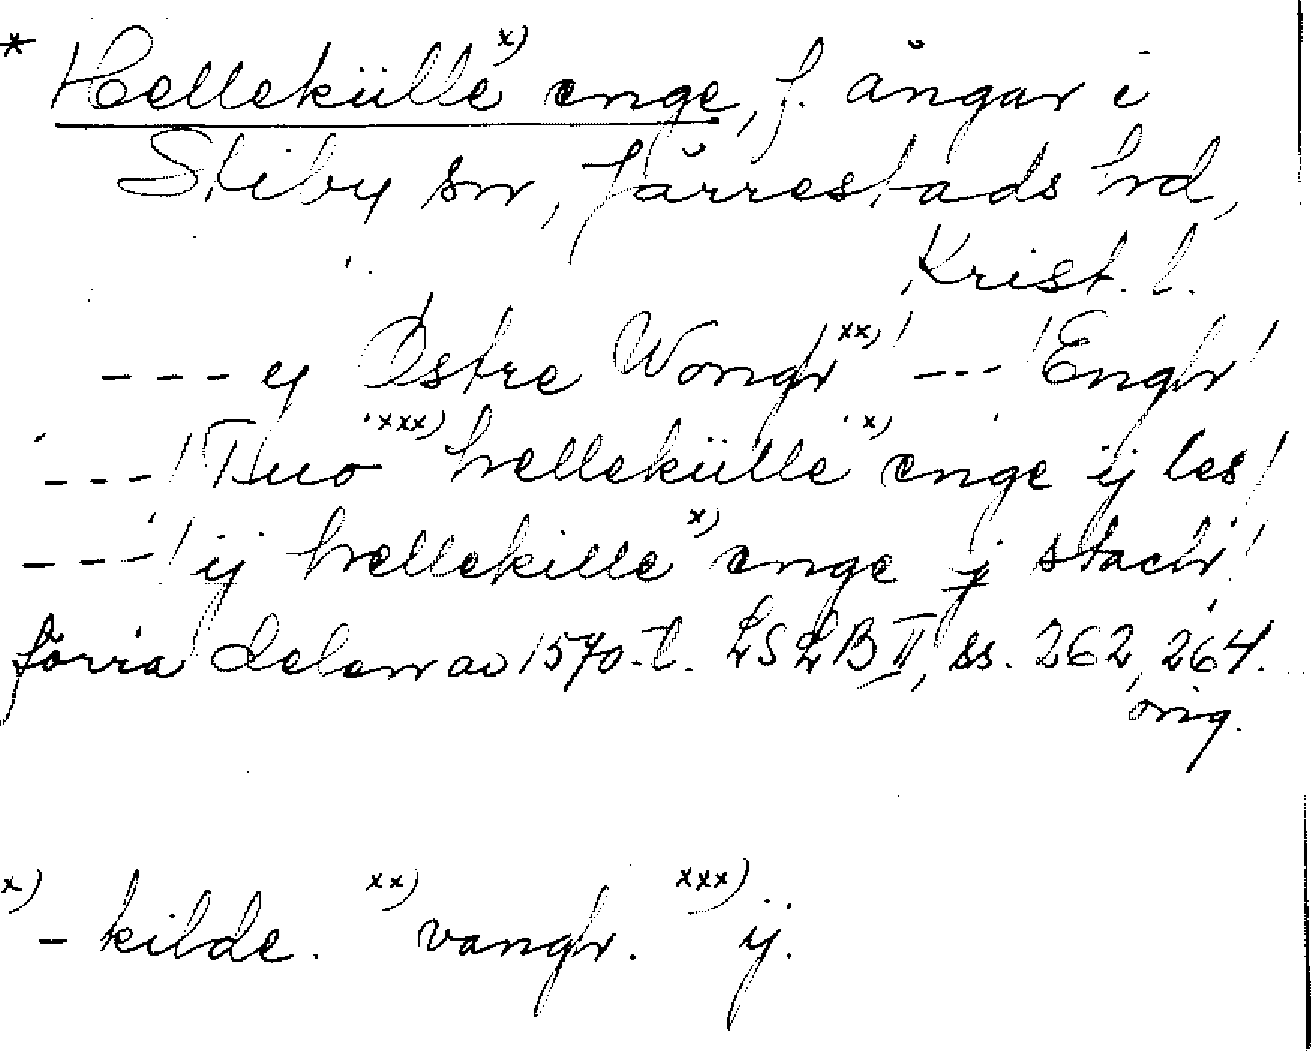 * Hellekülle x) enge, f. ängar i
Stiby sn, Järrestads hd,
Krist. l.
--- ij Östre Wongh xx) ! --- ! Engh !
--- ! Tuo xxx) hellekülle x) enge ij les !
--- ! ij hellekille x) enge j stach !
förra delen av 1570-t. LSLB II, ss. 262, 264.
orig.
x) - kilde. xx) vangh. xxx) ij.